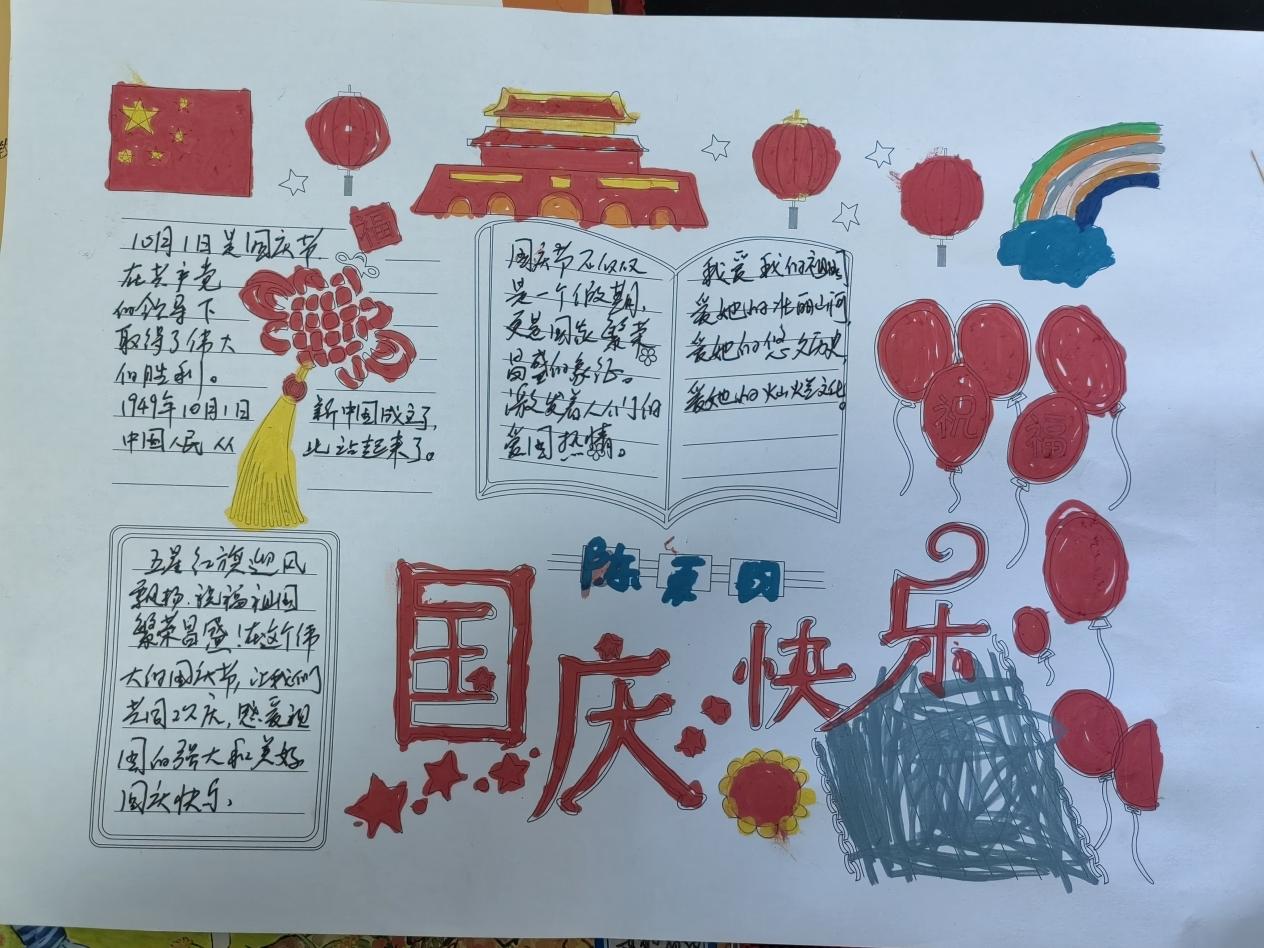 福
10月1日是国庆节
在共产党
的领导下
取得了伟大
的胜利。
1949年10月1日 新中国成立了,
中国人民从 此站起来了。
国庆节不仅仅
是一个假期,
更是国家繁荣
昌盛的象征。
激发着人们的
爱国热情。
我爱我们的祖国
爱她的壮丽山河,
爱她的悠久历史,
爱她的灿烂文化。
祝
福
五星红旗迎风
飘扬,祝福祖国
繁荣昌盛!在这个伟
大的国庆节,让我们
共同欢庆,
国的强大和美好
国庆快乐,
陈
国庆快乐